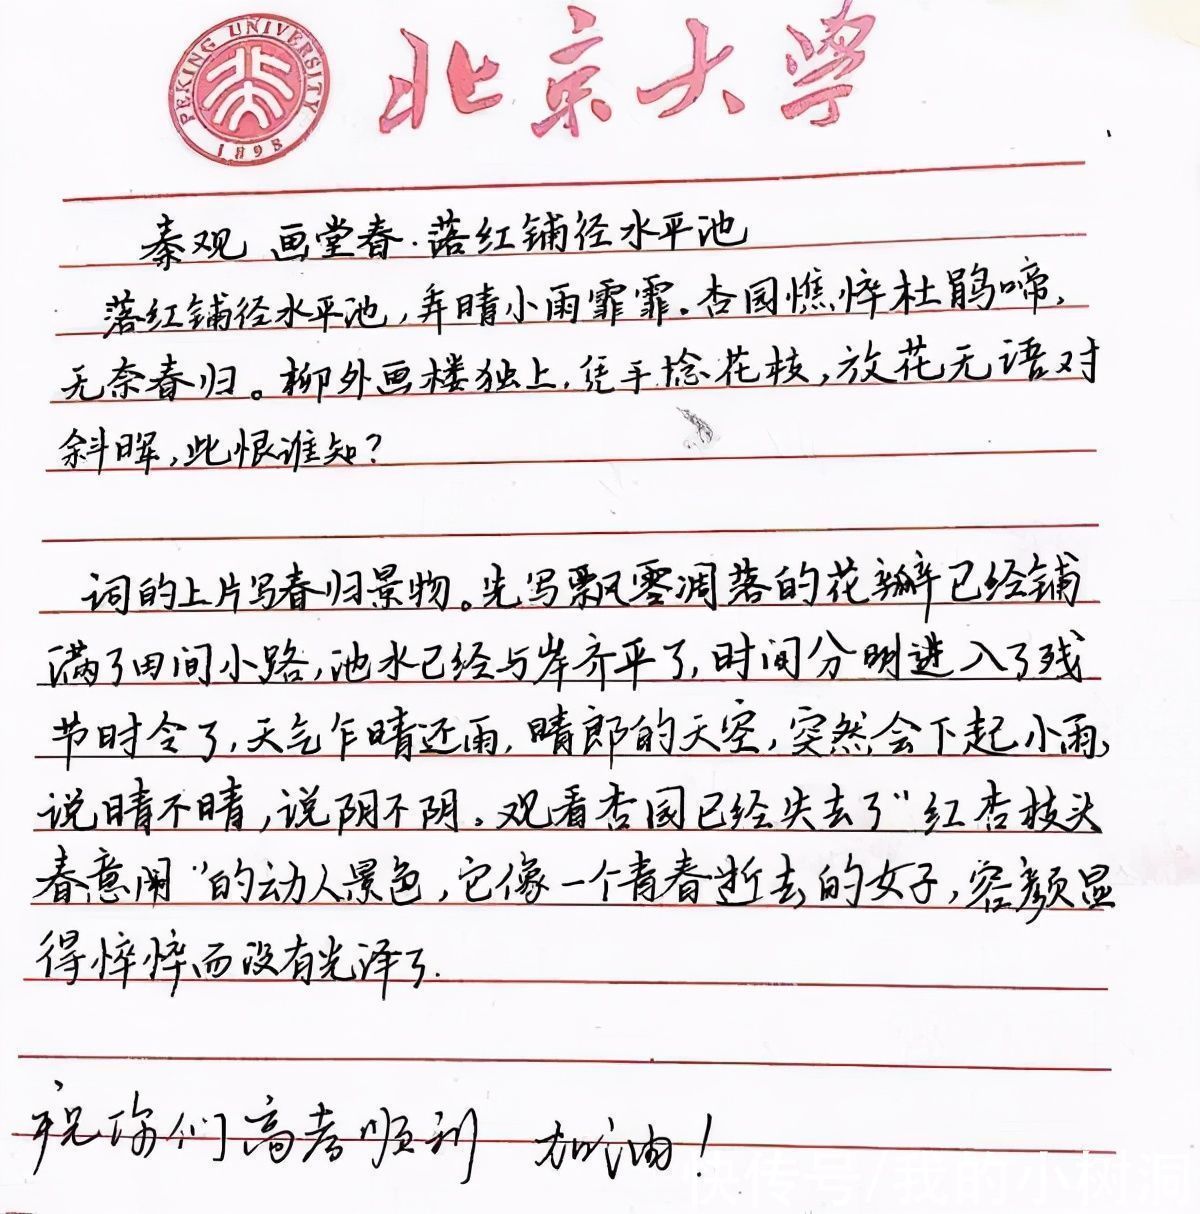 PEKING UNIVERSITY
1898
北京大学
秦观 画堂春·落红铺径水平池
落红铺径水平池，弄晴小雨霏霏。杏园憔悴杜鹃啼，
无奈春归。柳外画楼独上，凭手捻花枝，放花无语对
斜晖，此恨谁知？
词的上片写春归景物。先写飘零凋落的花瓣已经铺
满了田间小路，池水已经与岸齐平了，时间分明进入了残
节时令了，天气乍晴还雨，晴郎的天空，突然会下起小雨，
说晴不晴，说阴不阴。观看杏园已经失去了“红杏枝头
春意闹”的动人景色，它像一个青春逝去的女子，容颜显
得悴悴而没有光泽了.
祝你们高考顺利 加油！
快传号/我的小树洞